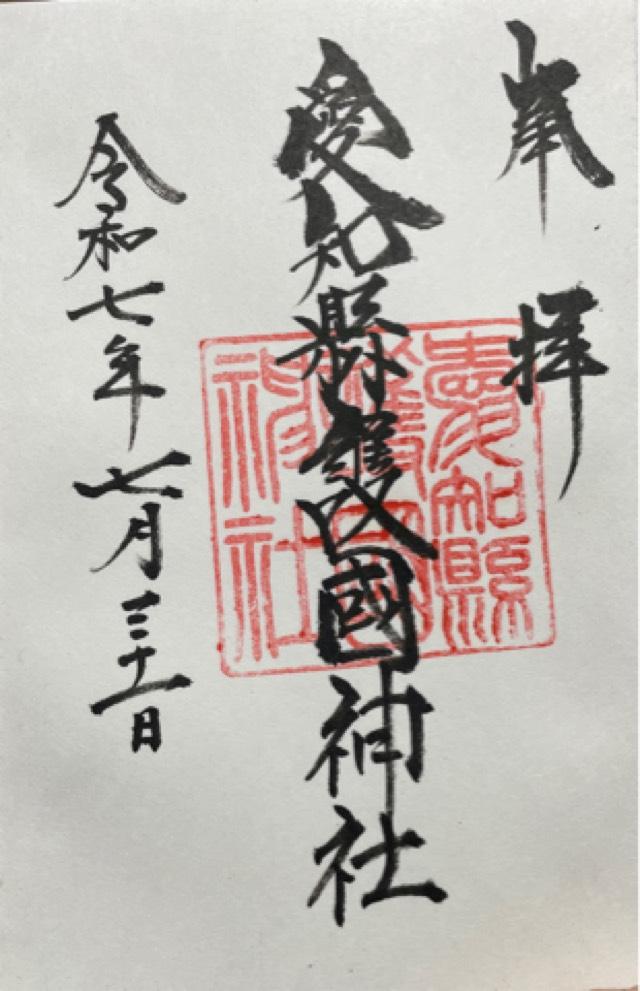 奉拝
愛知縣護國神社
愛知縣
護國
神社
令和七年七月三十一日